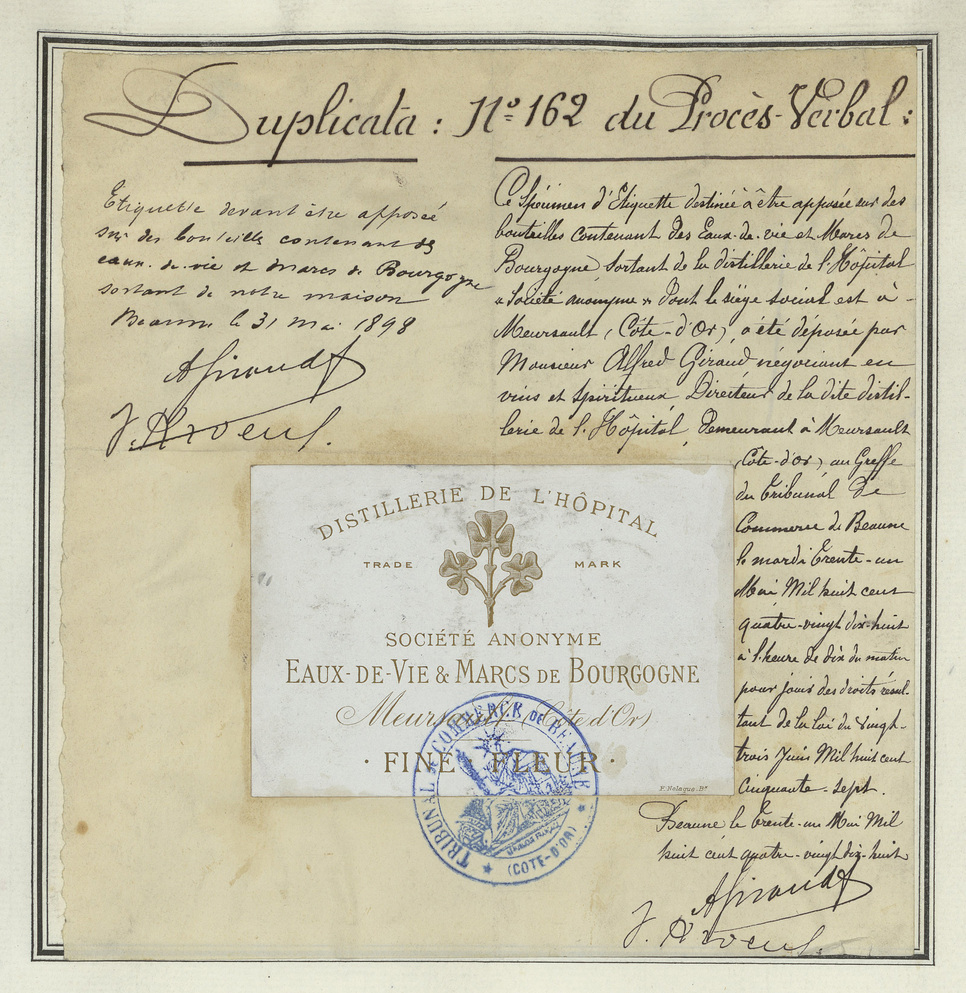 Duplicata : No 162 du Procès-Verbal :
Etiquette devant être apposée
sur des bouteille contenant des
eaux-de-vie et marcs de Bourgogne
sortant de notre maison
Beaune le 31 Mai 1898
AGiraud
Ce Spécimen d'Etiquette destinée à être apposée sur des
bouteilles contenant des Eaux-de-vie et Marcs de
Bourgogne sortant de la distillerie de l'Hôpital
« Société anonyme » Dont le siège social est à -
Meursault (Côte-d'Or), a été déposée par
Monsieur Alfred Giraud négociant en
vins et Spiritueux Directeur de la dite distil-
lerie de l'Hôpital, Demeurant à Meursault
(Côte-d'Or) au Greffe
du Tribunal De
Commerce de Beaune
le mardi Trente-un
Mai Mil huit cent
quatre-vingt dix-huit
à l'heure de dix du matin
pour jouir des droits résul-
tant de la loi du Vingt-
trois Juin Mil huit cent
Cinquante-sept.
Beaune le Trente-un Mai Mil
huit cent quatre-vingt dix-huit
AGiraud
DISTILLERIE DE L'HÔPITAL
TRADE MARK
SOCIÉTÉ ANONYME
EAUX-DE-VIE & MARCS DE BOURGOGNE
Meursault (Côte d'Or)
· FINE FLEUR ·
TRIBUNAL DE COMMERCE DE BEAUNE
(COTE-D'OR)